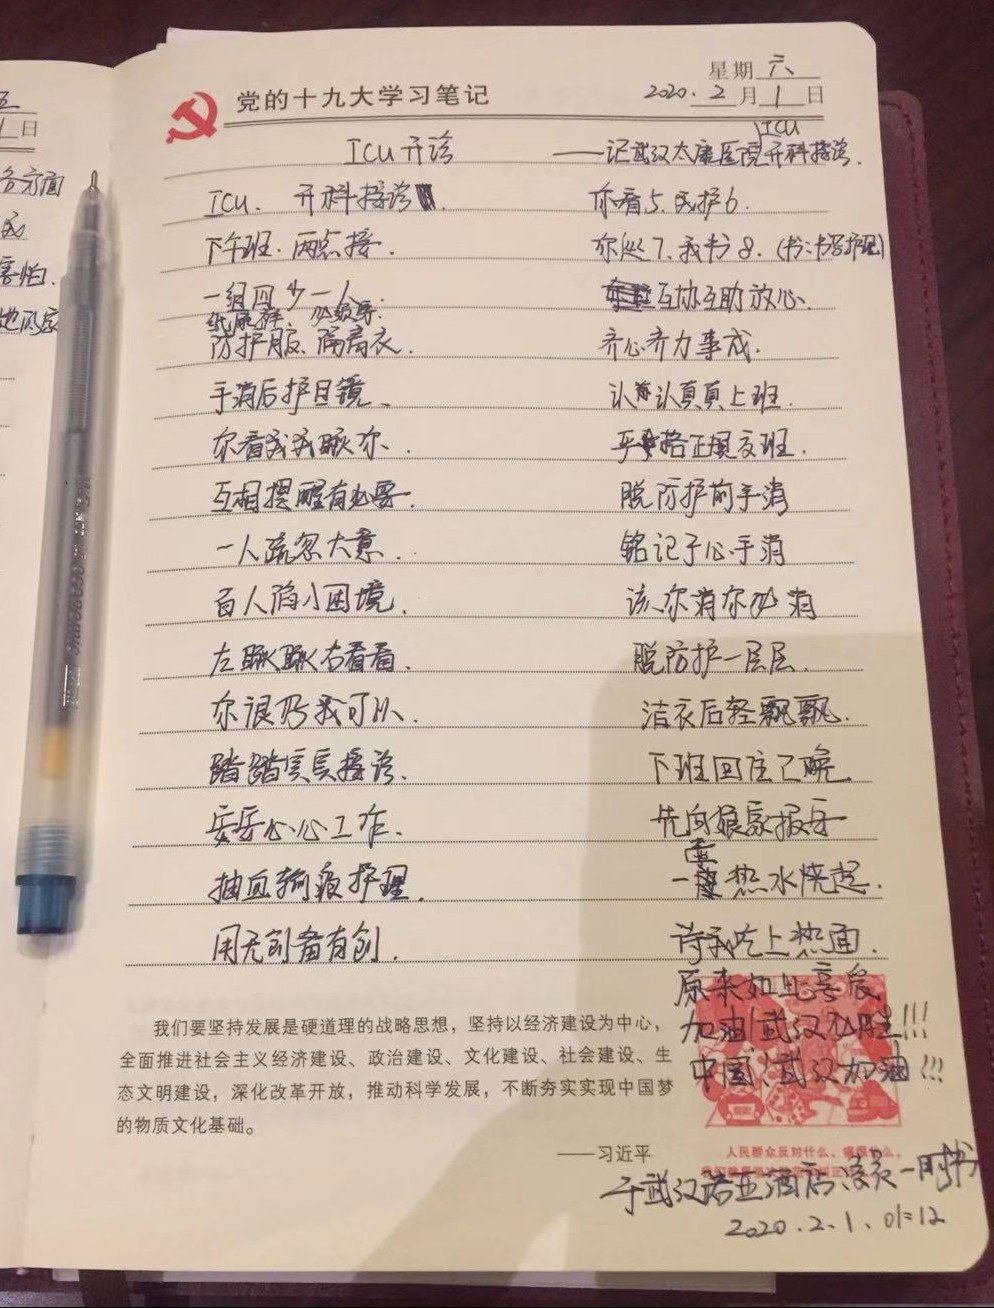 星期 六
党的十九大学习笔记
2020. 2 月 1 日
ICU开诊
——记武汉太康医院ICU开科接诊.
ICU. 开科接诊.
下午班. 两点接.
一组四少一人.
纸尿裤、必须穿.
防护服、隔离衣.
手消后护目镜、
你看我我瞅你.
互相提醒有必要.
一人疏忽大意.
百人陷入困境.
左瞅瞅右看看.
你很好我可以.
踏踏实实接诊.
安安心心工作.
抽血输液护理.
用无创备有创.
你看5.我护6.
你处7.我书8.(书:书写护理)
互协互助放心.
齐心齐力事成.
认认真真上班.
严格正规交班.
脱防护前手消
铭记于心手消
该你消你必消
脱防护一层层.
洁衣后轻飘飘.
下班回住已晚
先向娘家报平
一壶热水烧起.
待我吃上热面.
原来如此享受
加油!武汉必胜!!!
中国、武汉加油!!!
我们要坚持发展是硬道理的战略思想，坚持以经济建设为中心，
全面推进社会主义经济建设、政治建设、文化建设、社会建设、生
态文明建设，深化改革开放，推动科学发展，不断夯实实现中国梦
的物质文化基础。
——习近平
人民群众反对什么、痛恨什么，
于武汉诺亚酒店、
2020.2.1、01:12
五
1 日
各方面
我
害怕.